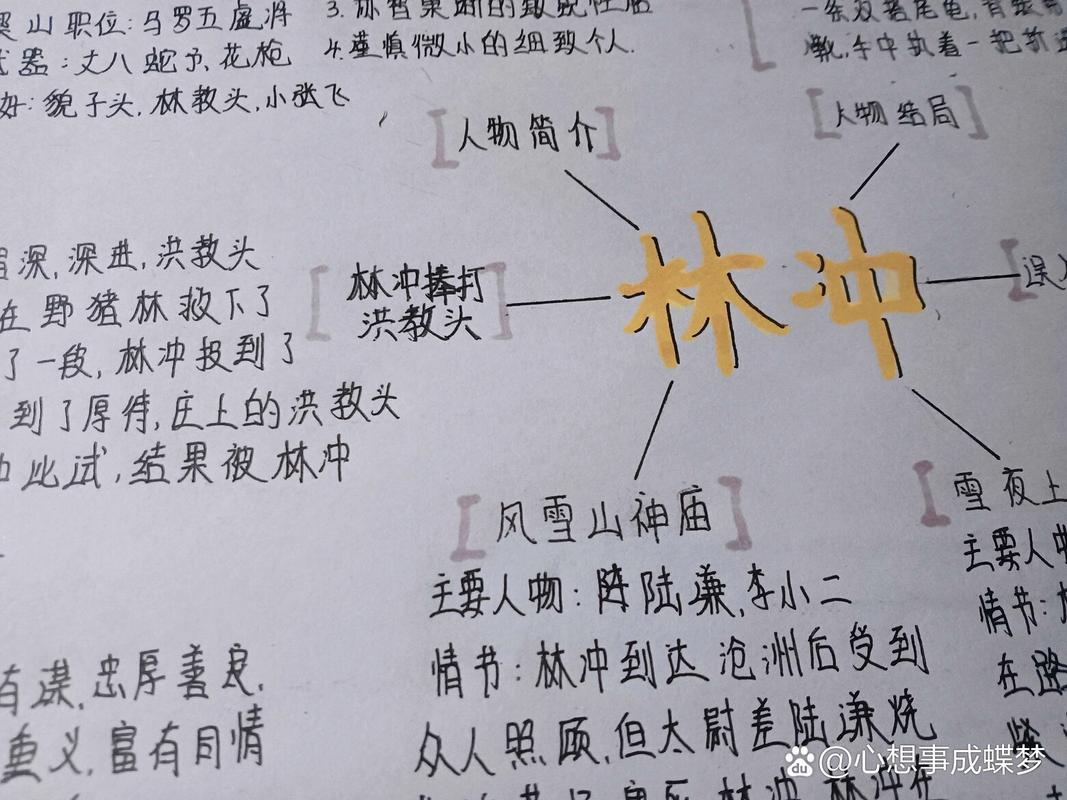 梁山职位:马军五虎将
武器:丈八蛇矛、花枪
好:貌子头,林教头,小张飞
4.谨慎微小的细致个人.
一条双搭尾龟,背银
靴,手中执着一把折
[人物简介]
[人物结局]
林冲
[林冲捧打
洪教头]
[误入
深,深进,洪教头
在野猪林救下了
了一段,林冲投到了
到了厚待,庄上的洪教头
比试,结果被林冲
有谋,忠厚善良,
重义,富有同情
[风雪山神庙]
主要人物:陆谦,李小二
情节:林冲到达沧洲后受到
众人照顾,但太尉差陆谦烧
林冲,林冲在
[雪夜上
主要人物
情节:
在路
@心想事成蝶梦